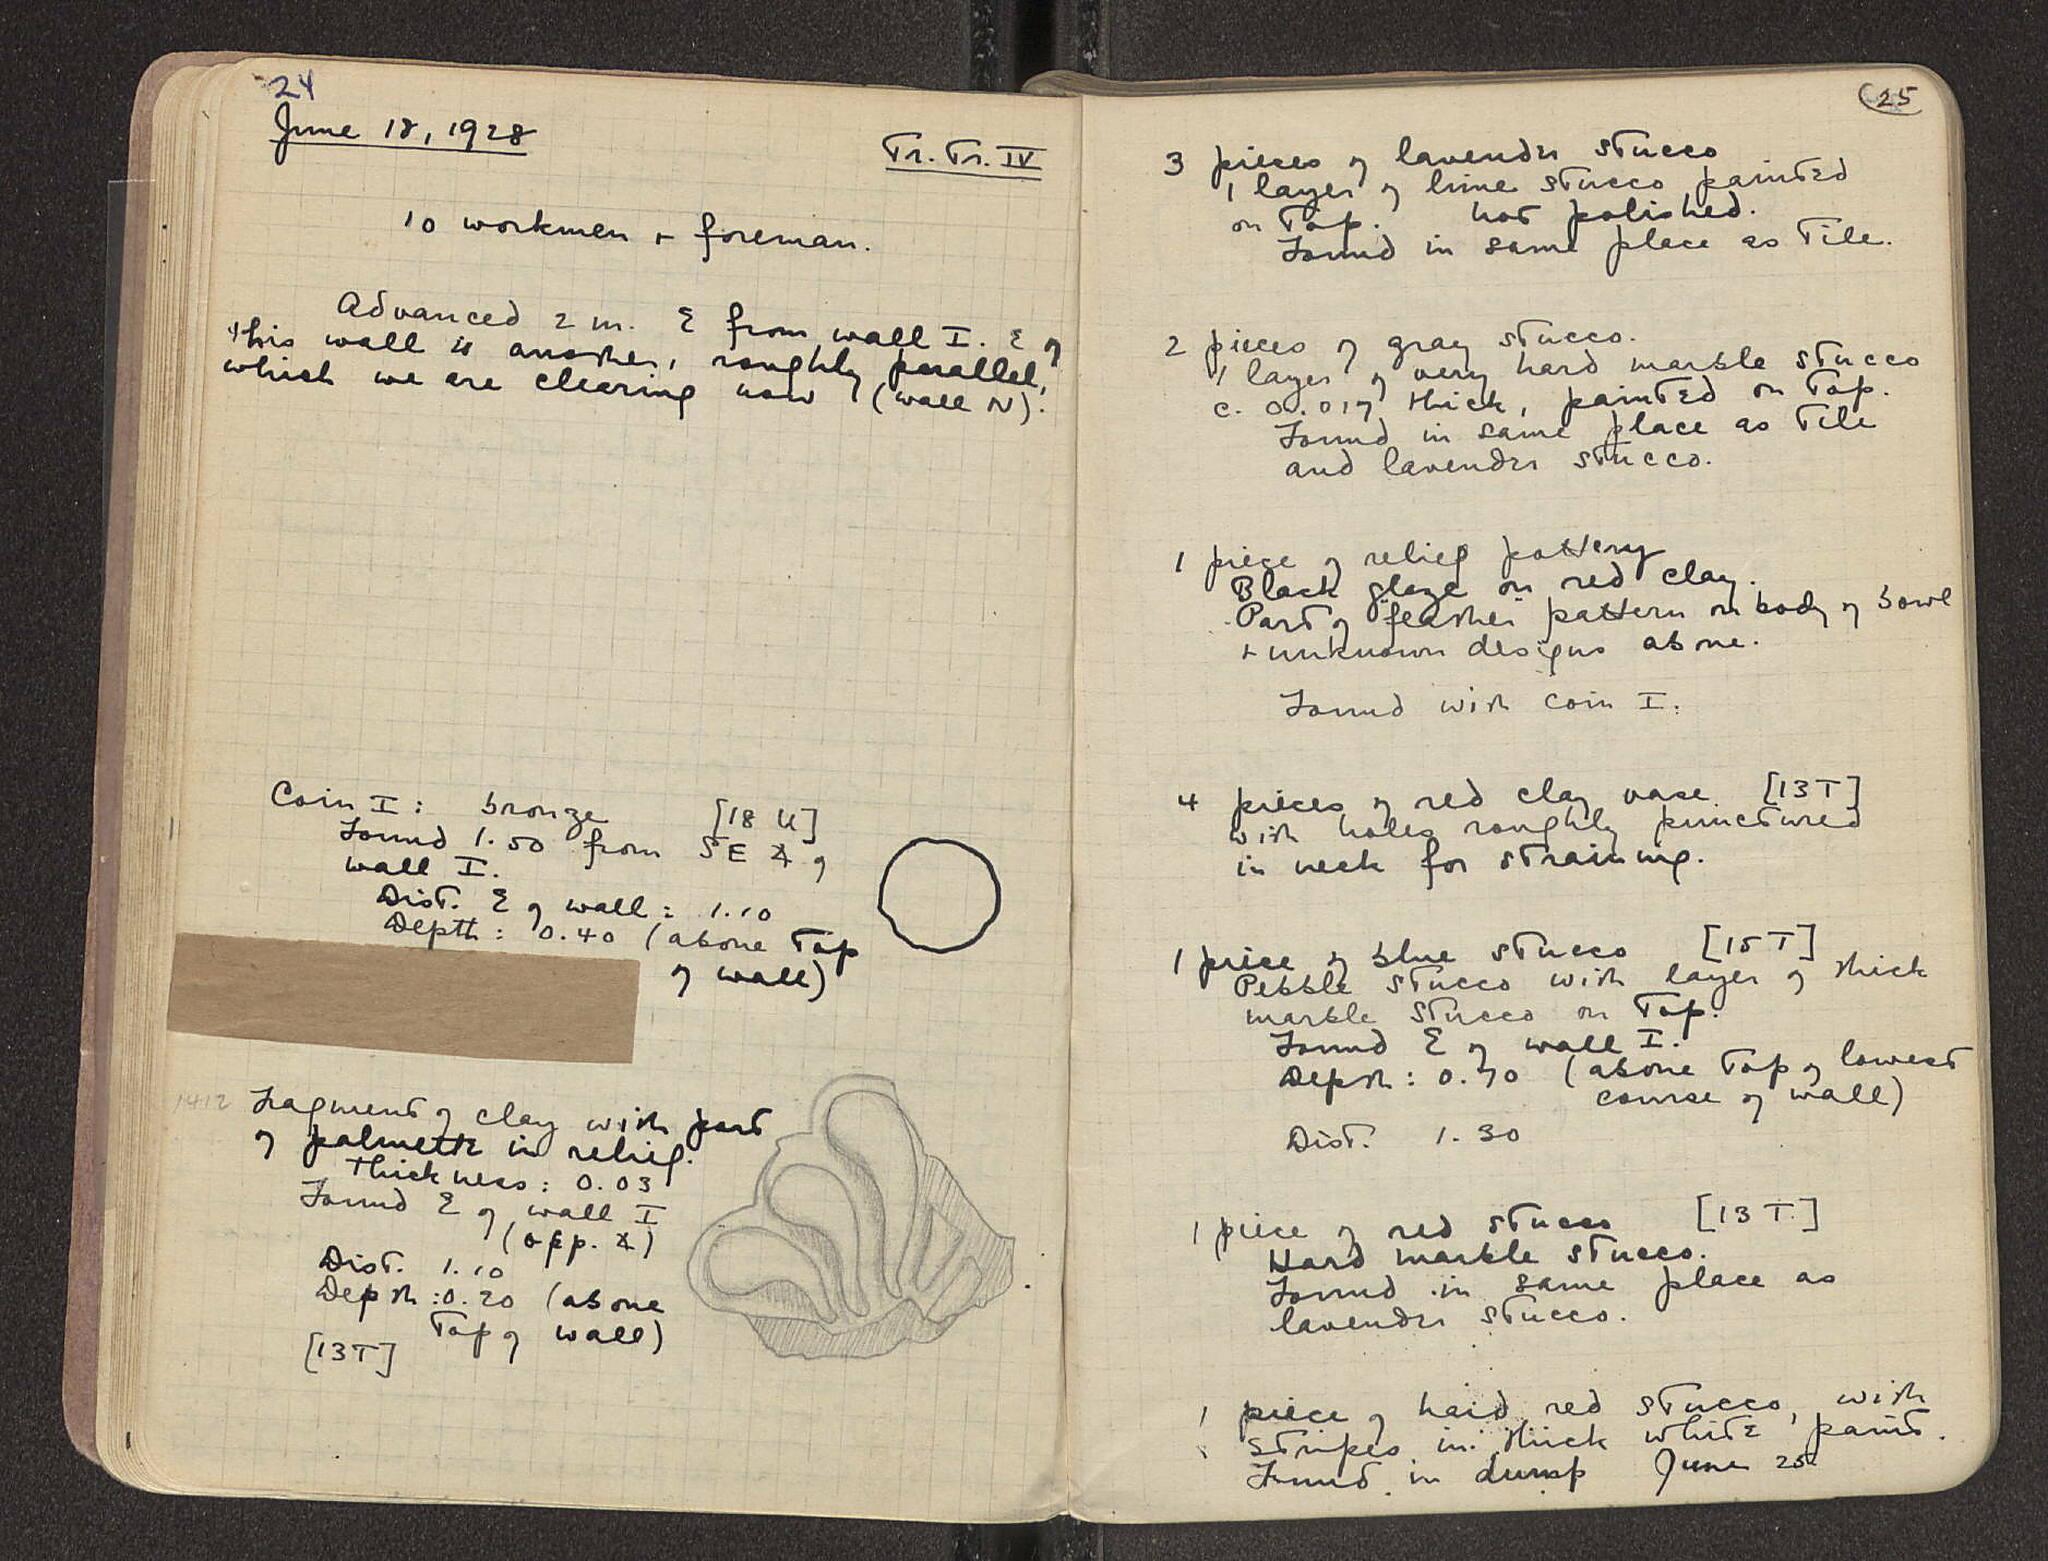 24
June 18, 1928
Tr. Tr. IV
10 workmen + foreman.
Advanced 2 m. E from wall I. E of
this wall is another, roughly parallel,
which we are clearing now (wall N).
Coin I: bronze [18 U]
Found 1.50 from SE ∡ of
wall I.
Dist. E of wall: 1.10
Depth: 0.40 (above top
of wall)
1412 Fragment of clay with part
of palmette in relief.
thickness: 0.03
Found E of wall I
(opp. ∡)
Dist. 1.10
Depth: 0.20 (above
top of wall)
[13T]
25
3 pieces of lavender stucco
1 layer of lime stucco painted
on top. not polished.
Found in same place as tile.
2 pieces of gray stucco.
1 layer of very hard marble stucco
c. 0.017 thick, painted on top.
Found in same place as tile
and lavender stucco.
1 piece of relief pottery
Black glaze on red clay.
Part of "feather" pattern on body of bowl
+ unknown designs above.
Found with coin I.
4 pieces of red clay vase. [13T]
with holes roughly punctured
in neck for straining.
1 piece of blue stucco [15T]
Pebble stucco with layer of thick
marble stucco on top.
Found E of wall I.
Depth: 0.70 (above top of lowest
course of wall)
Dist. 1.30
1 piece of red stucco [13T]
Hard marble stucco.
Found in same place as
lavender stucco.
1 piece of hard red stucco, with
stripes in thick white paint.
Found in dump June 25